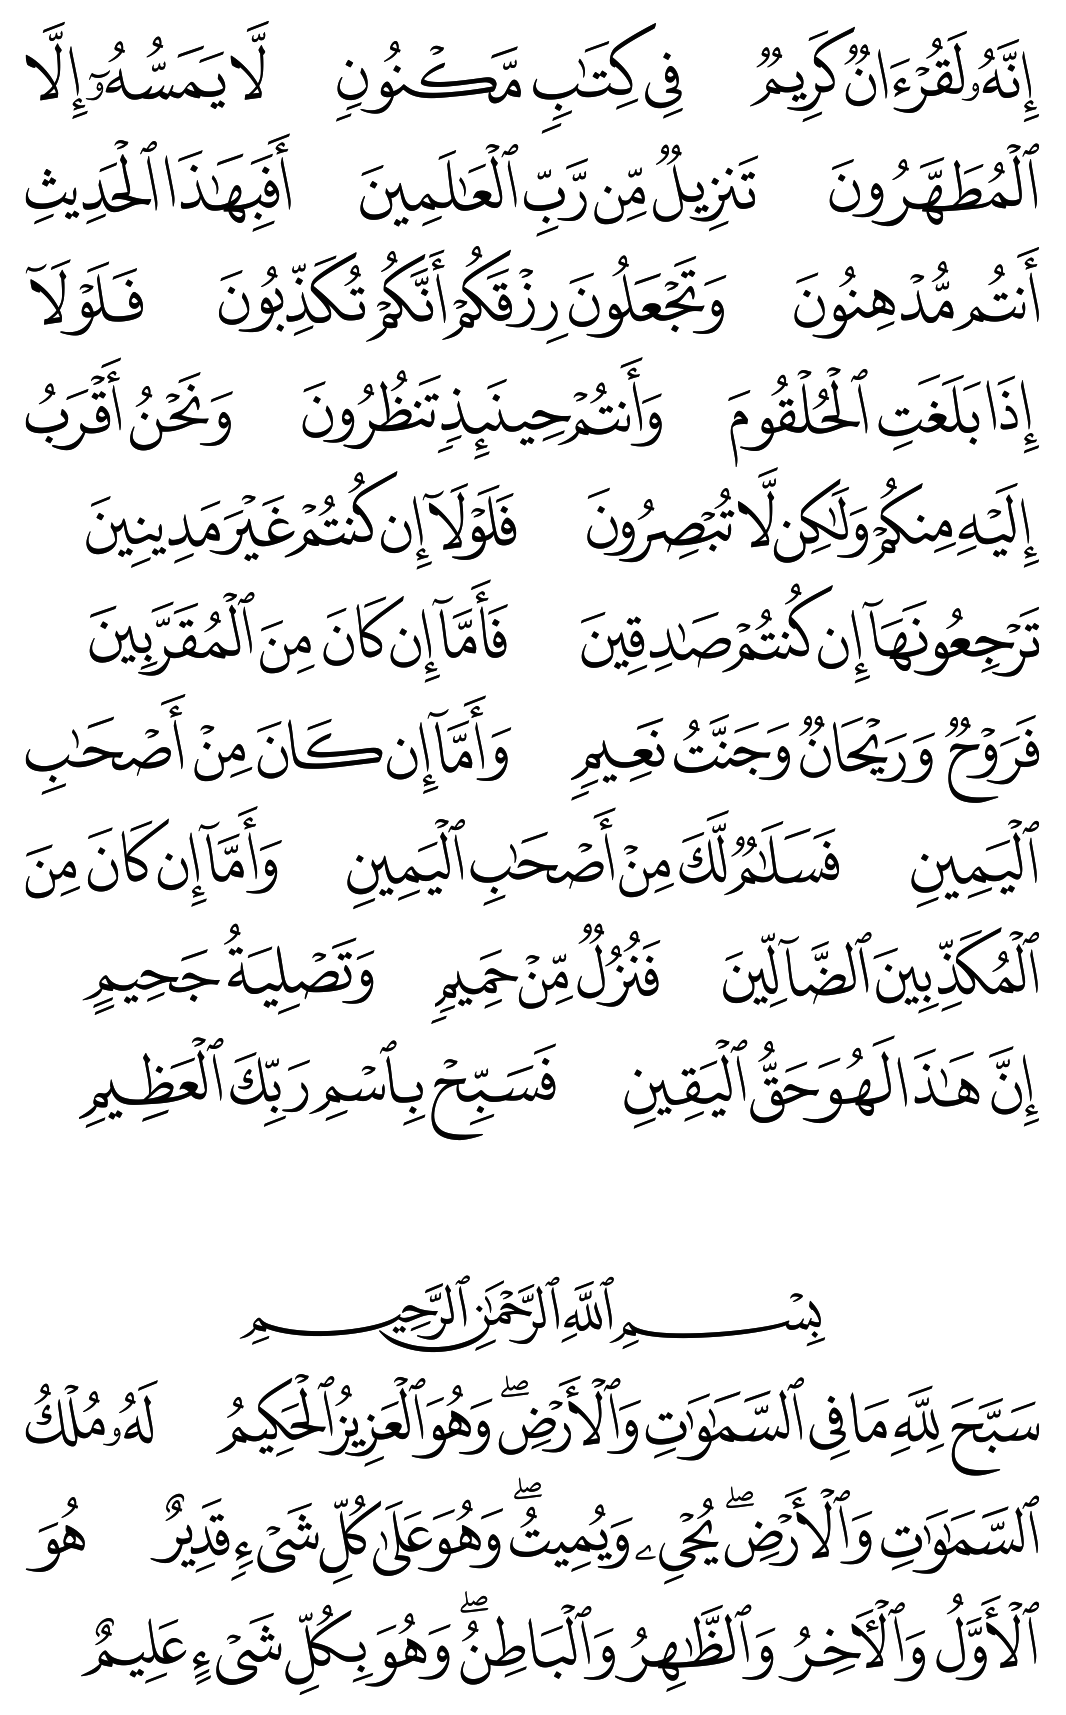 إِنَّهُۥ لَقُرْءَانٌ كَرِيمٌ فِى كِتَٰبٍ مَّكْنُونٍ لَّا يَمَسُّهُۥٓ إِلَّا
ٱلْمُطَهَّرُونَ تَنزِيلٌ مِّن رَّبِّ ٱلْعَٰلَمِينَ أَفَبِهَٰذَا ٱلْحَدِيثِ
أَنتُم مُّدْهِنُونَ وَتَجْعَلُونَ رِزْقَكُمْ أَنَّكُمْ تُكَذِّبُونَ فَلَوْلَآ
إِذَا بَلَغَتِ ٱلْحُلْقُومَ وَأَنتُمْ حِينَئِذٍ تَنظُرُونَ وَنَحْنُ أَقْرَبُ
إِلَيْهِ مِنكُمْ وَلَٰكِن لَّا تُبْصِرُونَ فَلَوْلَآ إِن كُنتُمْ غَيْرَ مَدِينِينَ
تَرْجِعُونَهَآ إِن كُنتُمْ صَٰدِقِينَ فَأَمَّآ إِن كَانَ مِنَ ٱلْمُقَرَّبِينَ
فَرَوْحٌ وَرَيْحَانٌ وَجَنَّتُ نَعِيمٍ وَأَمَّآ إِن كَانَ مِنْ أَصْحَٰبِ
ٱلْيَمِينِ فَسَلَٰمٌ لَّكَ مِنْ أَصْحَٰبِ ٱلْيَمِينِ وَأَمَّآ إِن كَانَ مِنَ
ٱلْمُكَذِّبِينَ ٱلضَّآلِّينَ فَنُزُلٌ مِّنْ حَمِيمٍ وَتَصْلِيَةُ جَحِيمٍ
إِنَّ هَٰذَا لَهُوَ حَقُّ ٱلْيَقِينِ فَسَبِّحْ بِٱسْمِ رَبِّكَ ٱلْعَظِيمِ
بِسْمِ ٱللَّهِ ٱلرَّحْمَٰنِ ٱلرَّحِيمِ
سَبَّحَ لِلَّهِ مَا فِى ٱلسَّمَٰوَٰتِ وَٱلْأَرْضِۖ وَهُوَ ٱلْعَزِيزُ ٱلْحَكِيمُ لَهُۥ مُلْكُ
ٱلسَّمَٰوَٰتِ وَٱلْأَرْضِۖ يُحْىِۦ وَيُمِيتُۖ وَهُوَ عَلَىٰ كُلِّ شَىْءٍ قَدِيرٌ هُوَ
ٱلْأَوَّلُ وَٱلْءَاخِرُ وَٱلظَّٰهِرُ وَٱلْبَاطِنُۖ وَهُوَ بِكُلِّ شَىْءٍ عَلِيمٌ